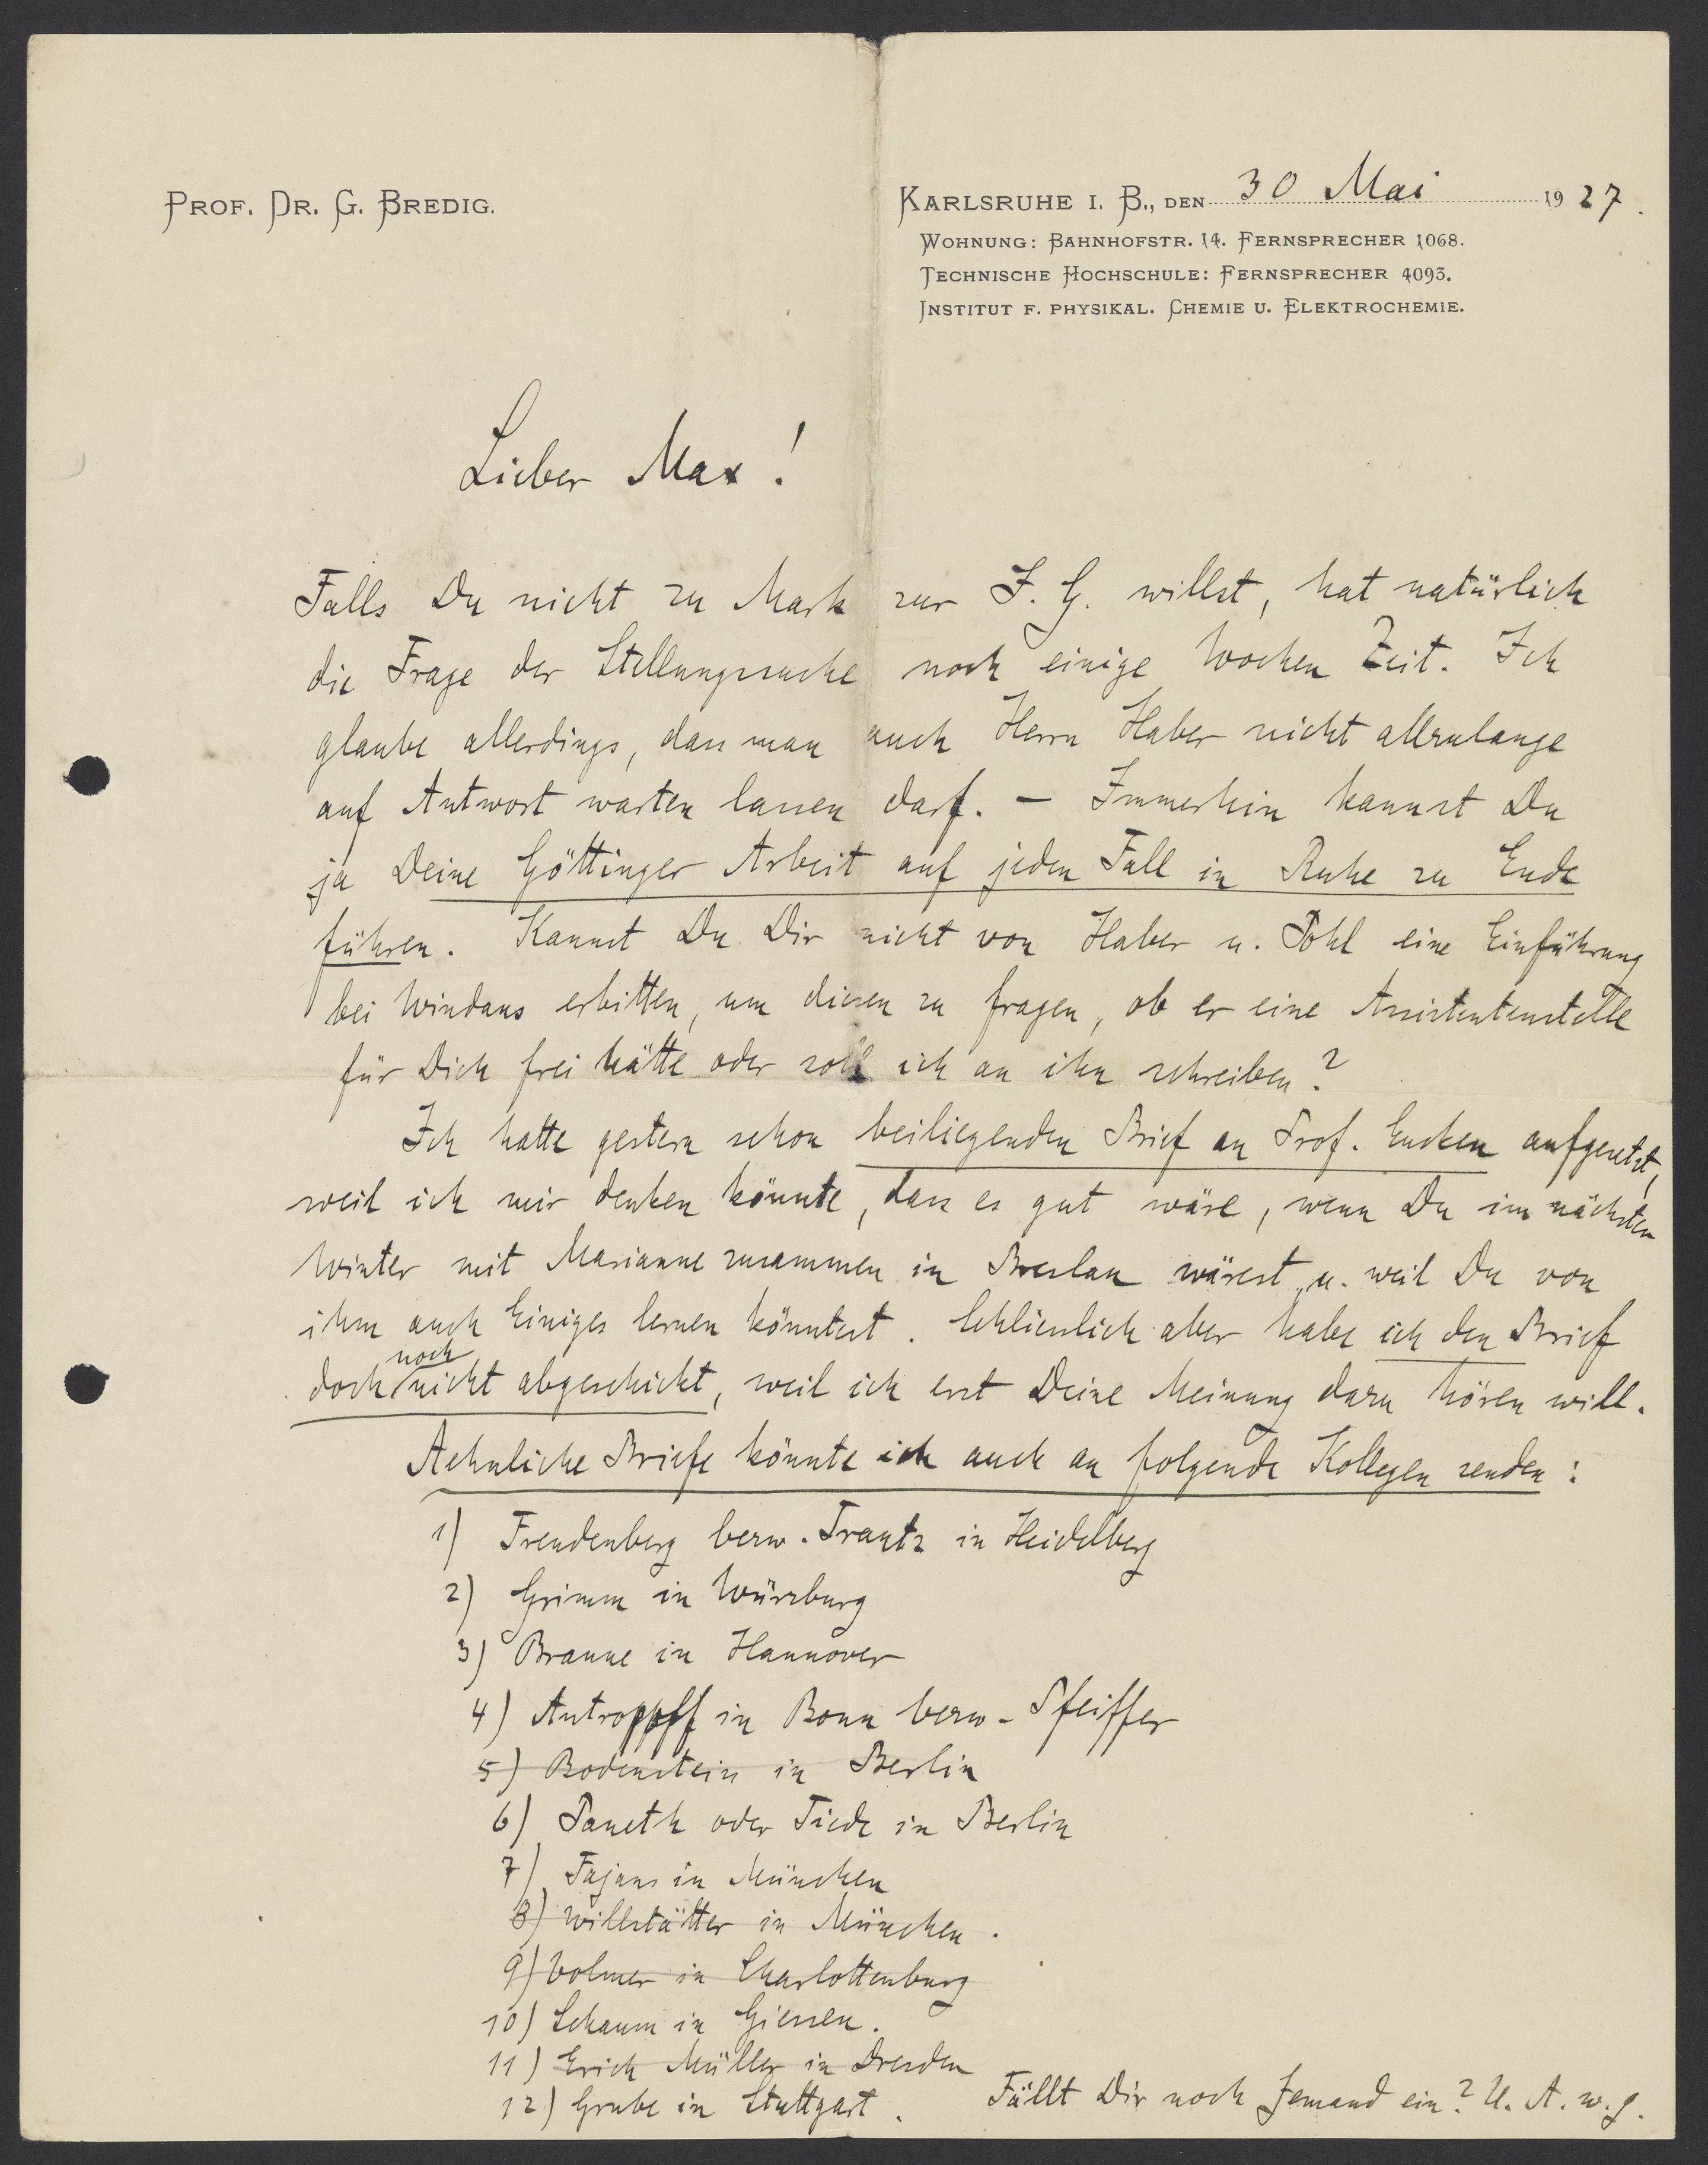 PROF. DR. G. BREDIG.
KARLSRUHE I. B., DEN 30 Mai 1927.
WOHNUNG: BAHNHOFSTR. 14. FERNSPRECHER 1068.
TECHNISCHE HOCHSCHULE: FERNSPRECHER 4093.
INSTITUT F. PHYSIKAL. CHEMIE U. ELEKTROCHEMIE.
Lieber Max!
Falls Du nicht zu Mark zur I. G. willst, hat natürlich
die Frage der Stellungssuche noch einige Wochen Zeit. Ich
glaube allerdings, dass man auch Herrn Haber nicht allzulange
auf Antwort warten lassen darf. – Immerhin kannst Du
ja Deine Göttinger Arbeit auf jeden Fall in Ruhe zu Ende
führen. Kannst Du Dir nicht von Haber u. Pohl eine Einführung
bei Windaus erbitten, um diesen zu fragen, ob er eine Assistentenstelle
für Dich frei hätte oder soll ich an ihn schreiben?
Ich hatte gestern schon beiliegenden Brief an Prof. Eucken aufgesetzt,
weil ich mir denken könnte, dass es gut wäre, wenn Du im nächsten
Winter mit Marianne zusammen in Breslau wärest u. weil Du von
ihm auch Einiges lernen könntest. Schliesslich aber habe ich den Brief
doch noch nicht abgeschickt, weil ich erst Deine Meinung dazu hören will.
Aehnliche Briefe könnte ich auch an folgende Kollegen senden:
1) Freudenberg bezw. Trautz in Heidelberg
2) Grimm in Würzburg
3) Braune in Hannover
4) Antropoff in Bonn bezw. Pfeiffer
5) Bodenstein in Berlin
6) Paneth oder Tiede in Berlin
7) Fajans in München
8) Willstätter in München.
9) Volmer in Charlottenburg
10) Schaum in Giessen.
11) Erich Müller in Dresden
12) Grube in Stuttgart.
Fällt Dir noch Jemand ein? U. A. w. g.